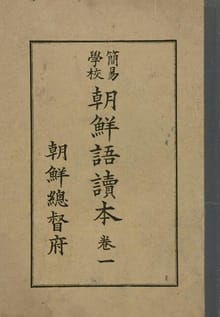 簡易學校
朝鮮語讀本 卷一
朝鮮總督府